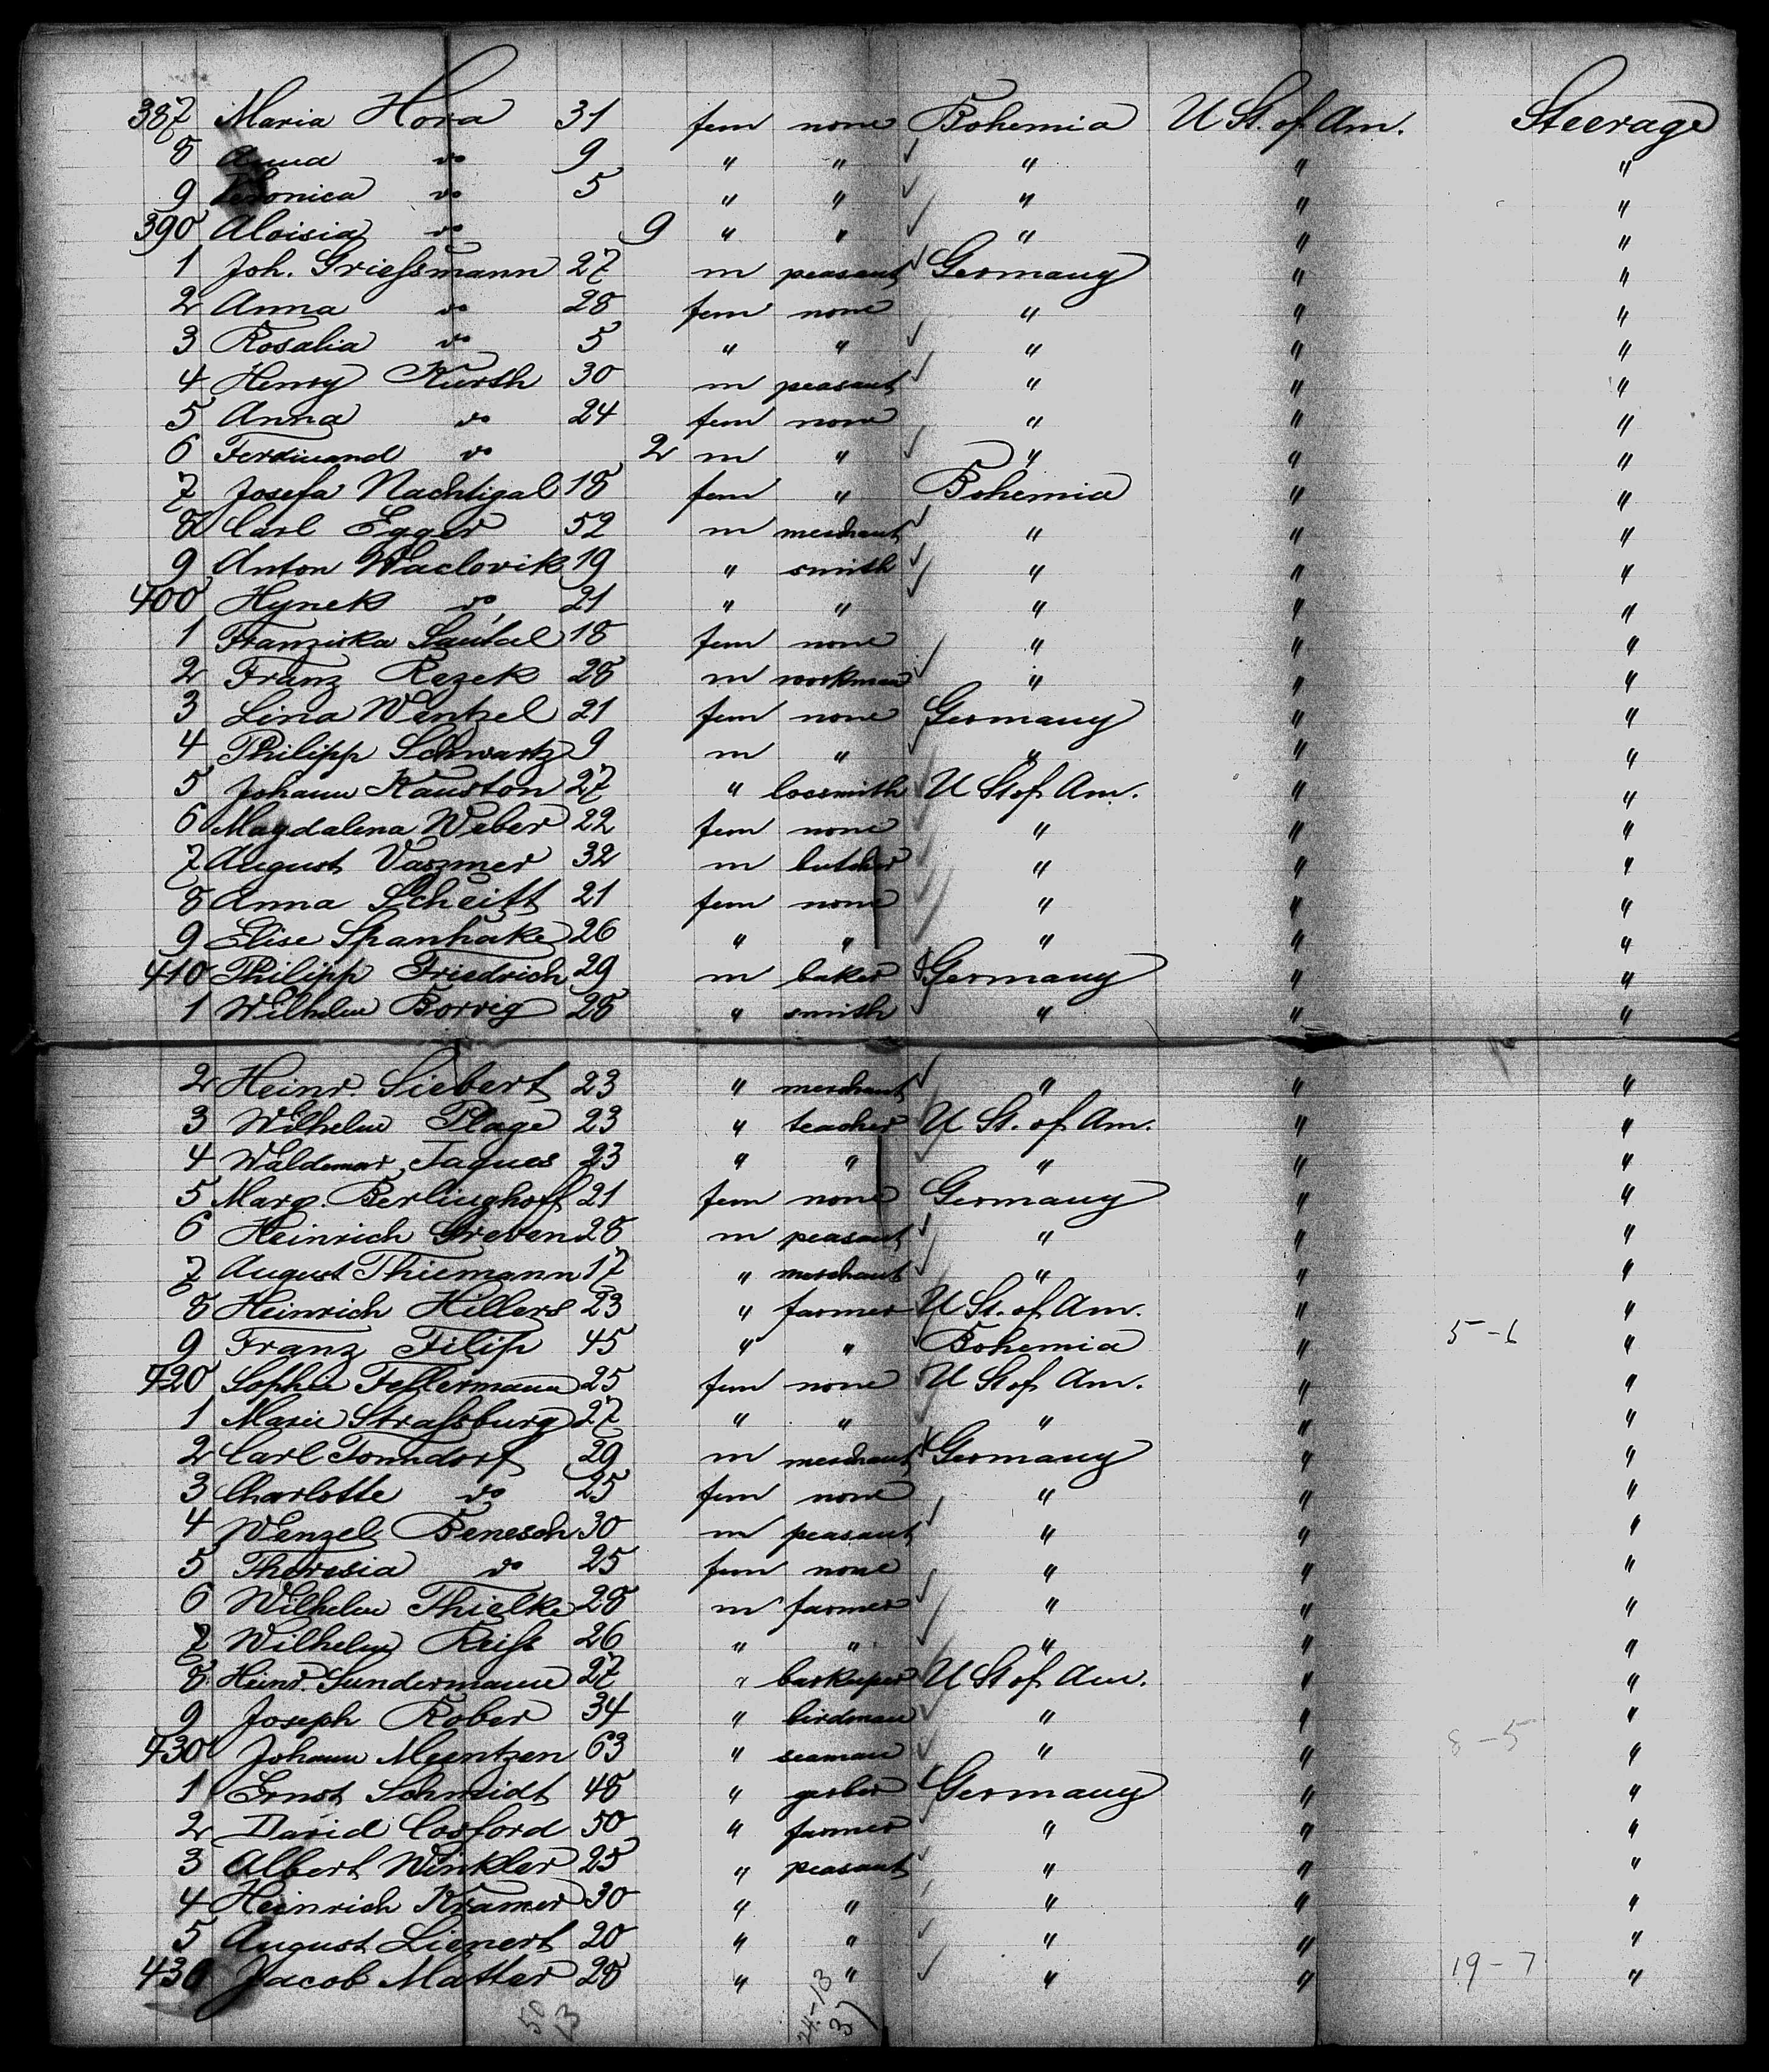 387 Maria Hora 31 fem none Bohemia U St. of Am. Steerage
8 Anna do 9 " " " " "
9 Veronica do 5 " " " " "
390 Aloisia do 9 " " " " "
1 Joh. Griessmann 27 m peasant Germany " "
2 Anna do 28 fem none " " "
3 Rosalia do 5 " " " " "
4 Henry Kursh 30 m peasant " " "
5 Anna do 24 fem none " " "
6 Ferdinand do 2 m " " " "
7 Josefa Nachtigal 18 fem " Bohemia " "
8 Carl Egger 52 m merchant " " "
9 Anton Waclovik 19 " smith " " "
400 Hynek do 21 " " " " "
1 Franziska 18 fem none " " "
2 Franz Rezek 28 m workman " " "
3 Lina Wentzel 21 fem none Germany " "
4 Philipp Schwartz 9 m " " " "
5 Johann Kauston 27 " locsmith U St of Am. " "
6 Magdalena Weber 22 fem none " " "
7 August Vassmer 32 m butcher " " "
8 Anna Scheitt 21 fem none " " "
9 Elise Spanhake 26 " " " " "
410 Philipp Friedrich 29 m baker Germany " "
1 Wilhelm Borrig 28 " smith " " "
2 Heinr. Siebert 23 " merchant " " "
3 Wilhelm Plage 23 " teacher U St. of Am. " "
4 Waldemar Jaques 23 " " " " "
5 Marg. Berlinghoff 21 fem none Germany " "
6 Heinrich Greven 28 m peasant " " "
7 August Thiemann 17 " merchant " " "
8 Heinrich Hillers 23 " farmer U St. of Am. " "
9 Franz Filip 45 " " Bohemia " 5-6 "
420 Sophie Fellermann 25 fem none U St of Am. " "
1 Marie Strassburg 27 " " " " "
2 Carl Tonndorf 29 m merchant Germany " "
3 Charlotte do 25 fem none " " "
4 Wenzel Benesch 30 m peasant " " "
5 Theresia do 25 fem none " " "
6 Wilhelm Thielke 28 m farmer " " "
7 Wilhelm Reiss 26 " " " " "
8 Heinr. Sundermann 27 " barkeeper U St of Am. " "
9 Joseph Rober 34 " birdman " " "
430 Johann Meentzen 63 " seaman " " 8-5 "
1 Ernst Schmidt 48 " gerber Germany " "
2 David Cosford 50 " farmer " " "
3 Albert Winkler 25 " peasant " " "
4 Heinrich Kramer 30 " " " " "
5 August Lienert 20 " " " " "
436 Jacob Matter 28 " " " " 19-7 "
50 13 24-13
3